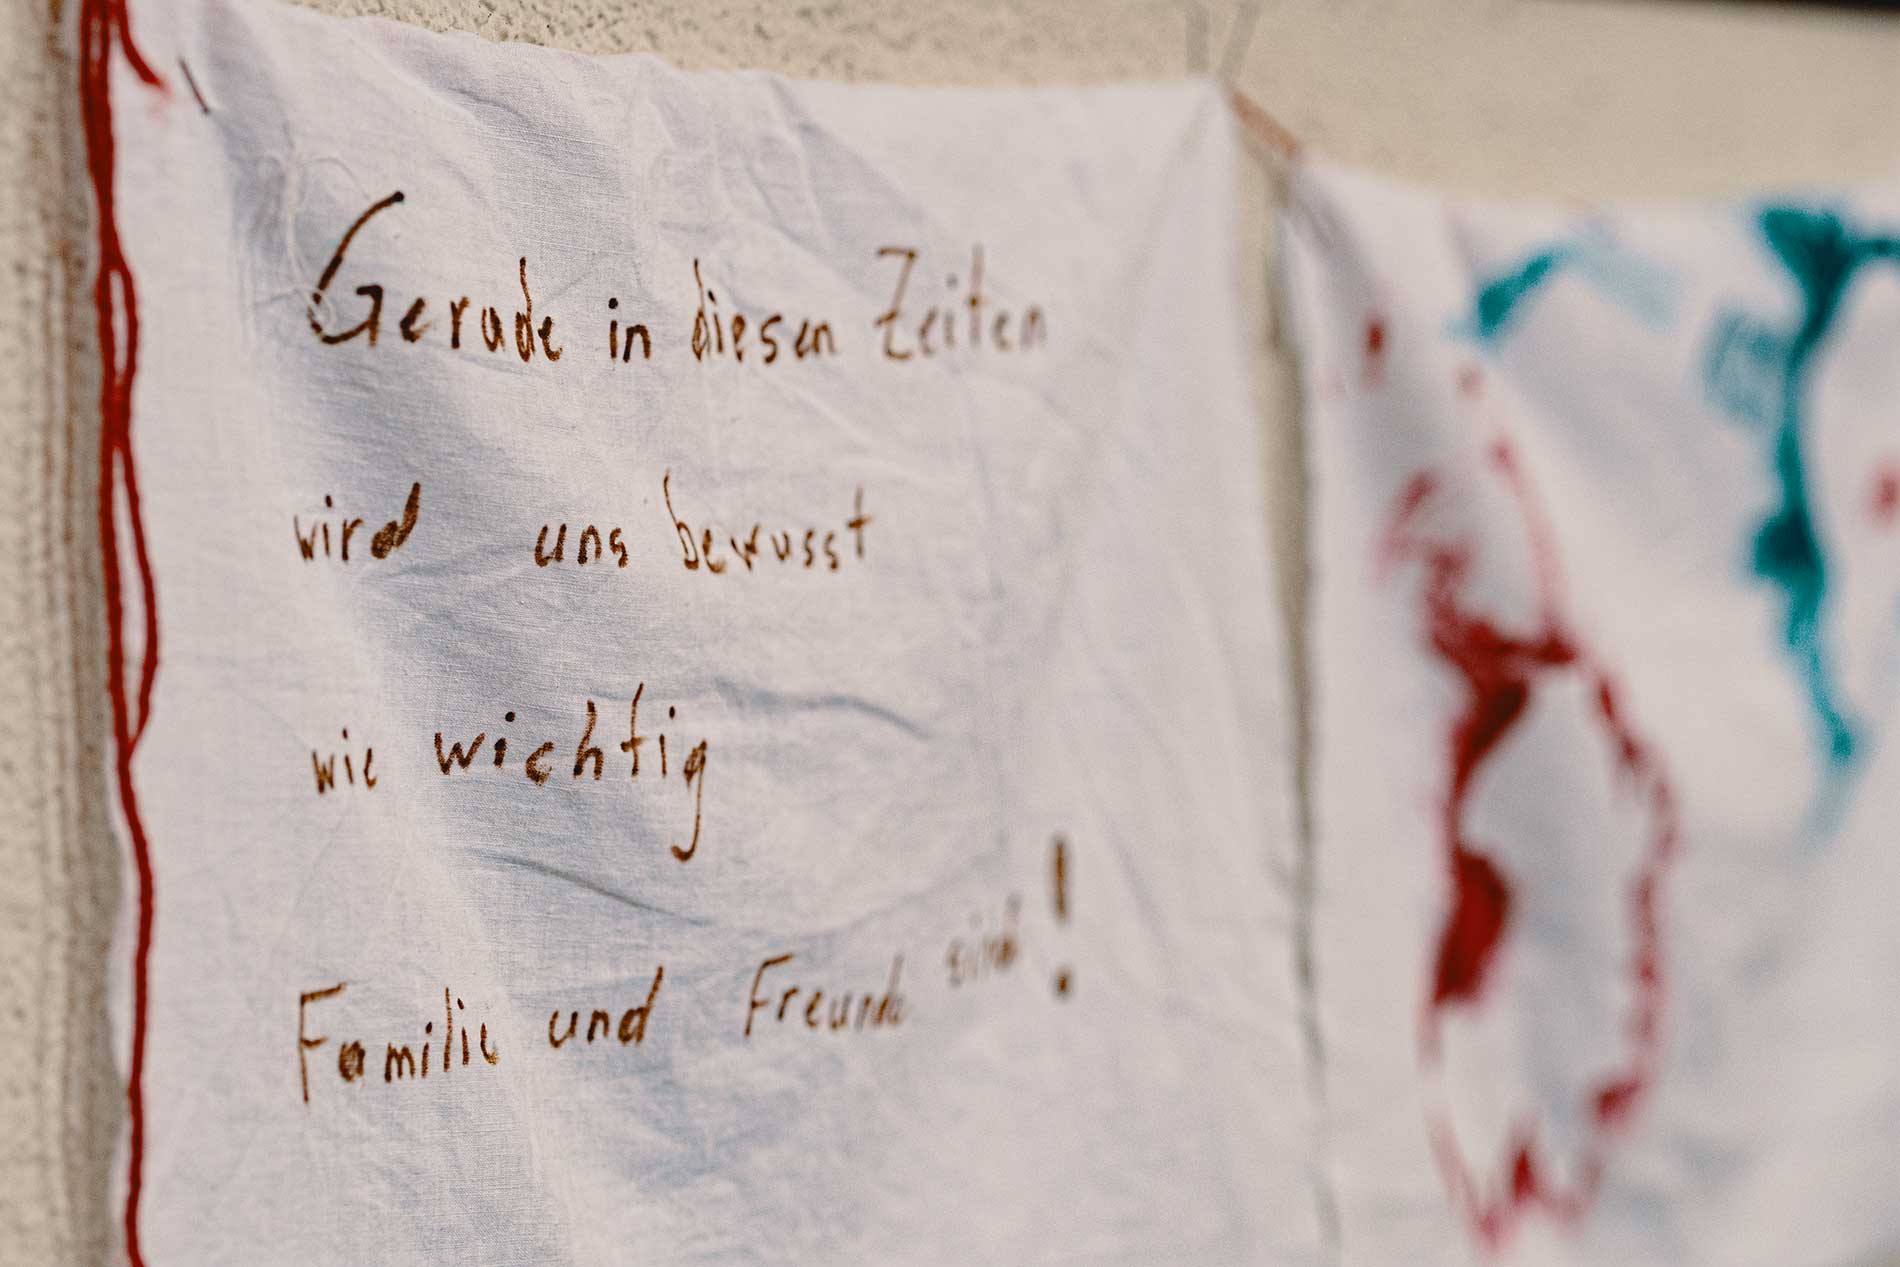 Gerade in diesen Zeiten
wird uns bewusst
wie wichtig
Familie und Freunde sind!